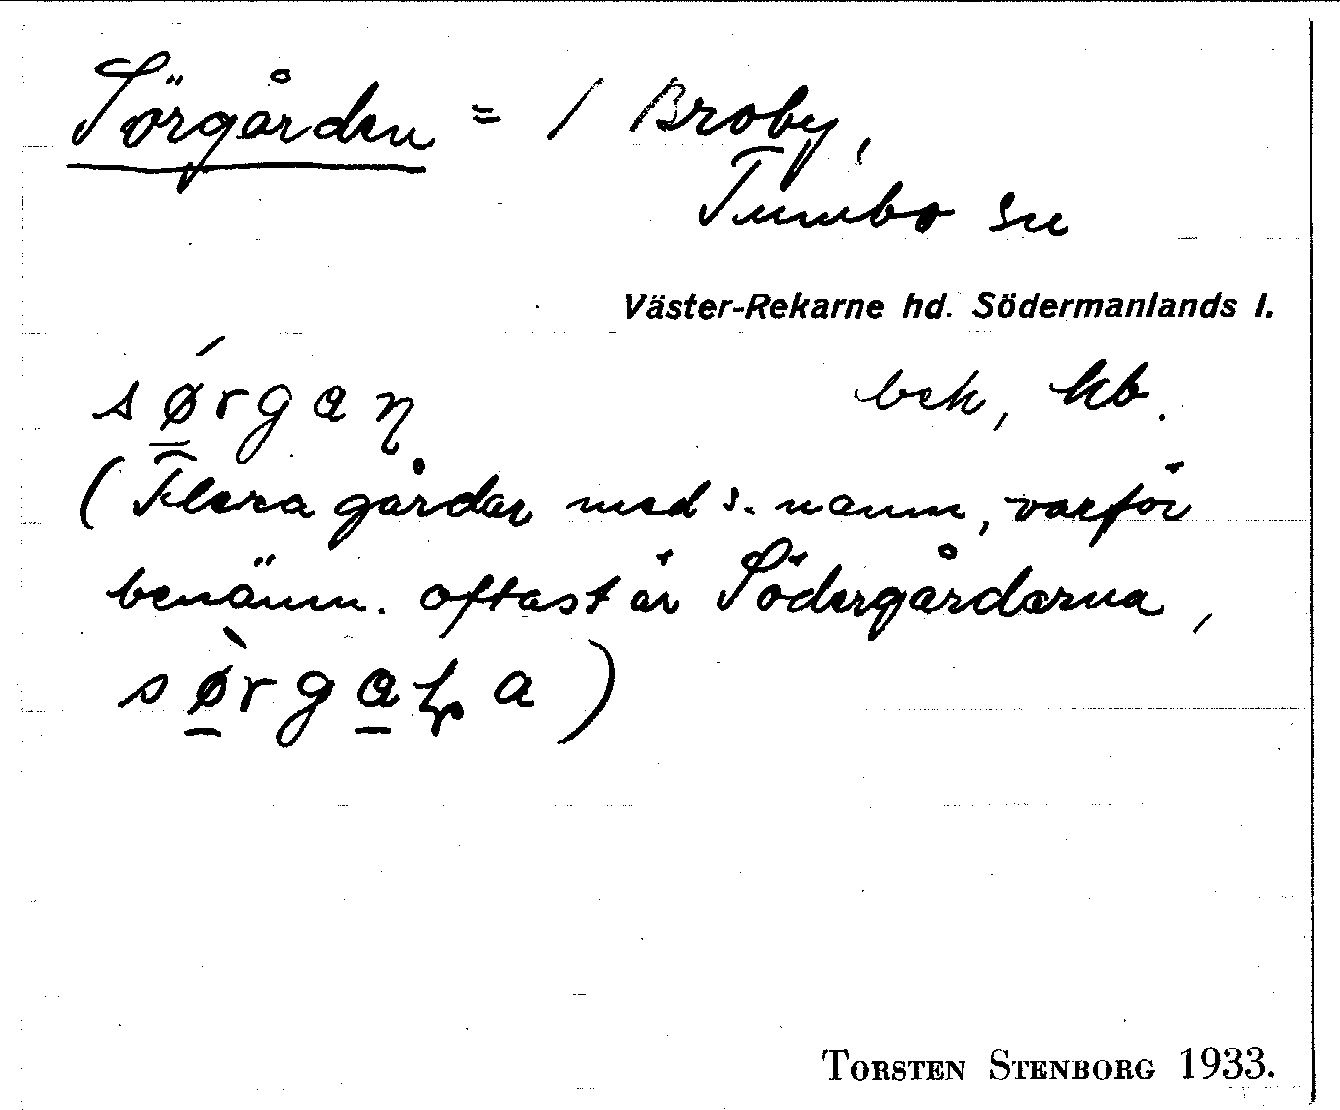 Sörgården = 1 Broby,
Tumbo sn
Väster-Rekarne hd. Södermanlands l.
sǿrgaη bek, kb.
(Flera gårdar med s. namn, varför
benämn. oftast är Södergårdarna,
a)
TORSTEN STENBORG 1933.